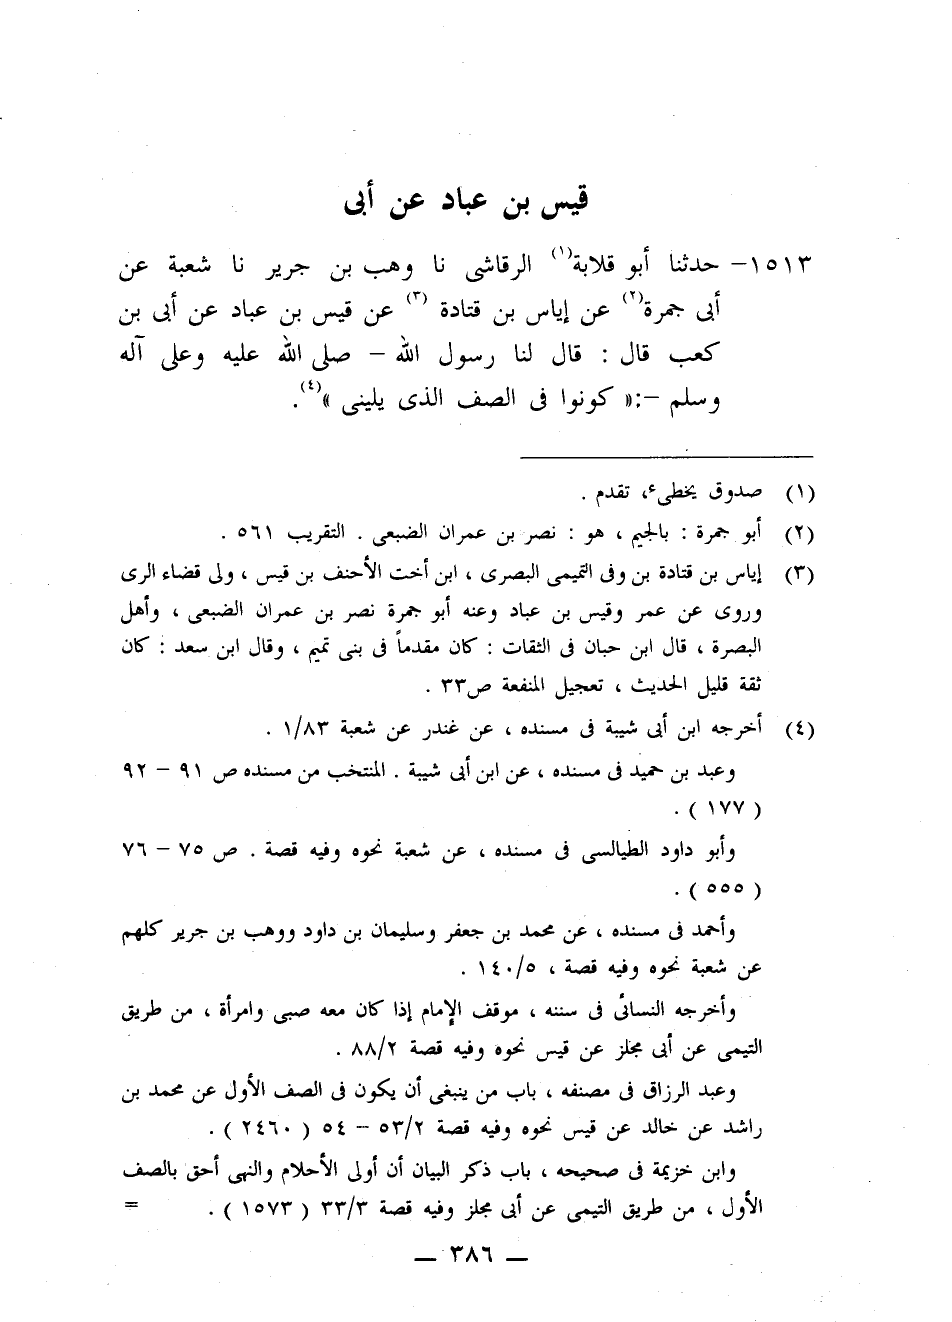 قيس بن عباد عن أبى
١٥١٣- حدثنا أبو قلابة(١) الرقاشى نا وهب بن جرير نا شعبة عن
أبى جمرة(٢) عن إياس بن قتادة (٣) عن قيس بن عباد عن أبى بن
كعب قال : قال لنا رسول الله – صلى الله عليه وعلى آله
وسلم –:« كونوا فى الصف الذى يلينى »(٤).
(١) صدوق يخطىء، تقدم .
(٢) أبو جمرة : بالجيم ، هو : نصر بن عمران الضبعى . التقريب ٥٦١ .
(٣) إياس بن قتادة بن وفى التميمى البصرى ، ابن أخت الأحنف بن قيس ، ولى قضاء الرى
وروى عن عمر وقيس بن عباد وعنه أبو جمرة نصر بن عمران الضبعى ، وأهل
البصرة ، قال ابن حبان فى الثقات : كان مقدماً فى بنى تميم ، وقال ابن سعد : كان
ثقة قليل الحديث ، تعجيل المنفعة ص٣٣ .
(٤) أخرجه ابن أبى شيبة فى مسنده ، عن غندر عن شعبة ١/٨٣ .
وعبد بن حميد فى مسنده ، عن ابن أبى شيبة . المنتخب من مسنده ص ٩١ – ٩٢
( ١٧٧ ) .
وأبو داود الطيالسى فى مسنده ، عن شعبة نحوه وفيه قصة . ص ٧٥ – ٧٦
( ٥٥٥ ) .
وأحمد فى مسنده ، عن محمد بن جعفر وسليمان بن داود ووهب بن جرير كلهم
عن شعبة نحوه وفيه قصة ، ١٤٠/٥ .
وأخرجه النسائى فى سننه ، موقف الإمام إذا كان معه صبى وامرأة ، من طريق
التيمى عن أبى مجلز عن قيس نحوه وفيه قصة ٨٨/٢ .
وعبد الرزاق فى مصنفه ، باب من ينبغى أن يكون فى الصف الأول عن محمد بن
راشد عن خالد عن قيس نحوه وفيه قصة ٥٣/٢ – ٥٤ ( ٢٤٦٠ ) .
وابن خزيمة فى صحيحه ، باب ذكر البيان أن أولى الأحلام والنهى أحق بالصف
الأول ، من طريق التيمى عن أبى مجلز وفيه قصة ٣٣/٣ ( ١٥٧٣ ) . =
— ٣٨٦ —